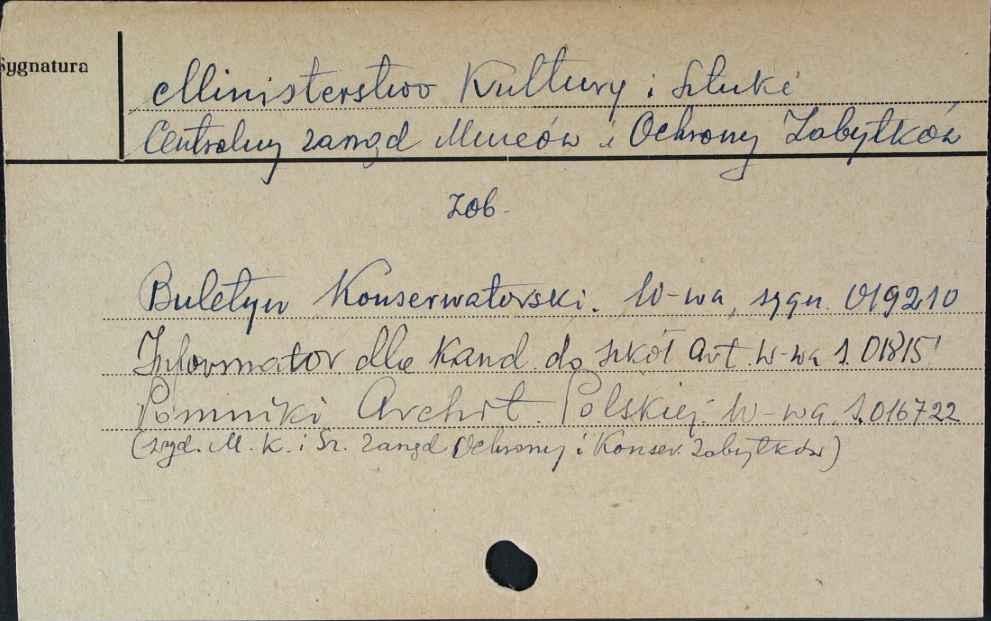 Sygnatura
Ministerstwo Kultury i Sztuki
Centralny zarząd Muzeów i Ochrony Zabytków
zob.
Buletyn Konserwatorski. W-wa, sygn. 019210
Informator dla kand. do szkół Art. W-wa s. 01815
Pomniki Archit. Polskiej. W-wa s. 016722
(wyd. M. K. i Sz. zarząd Ochrony i Konser. zabytków)